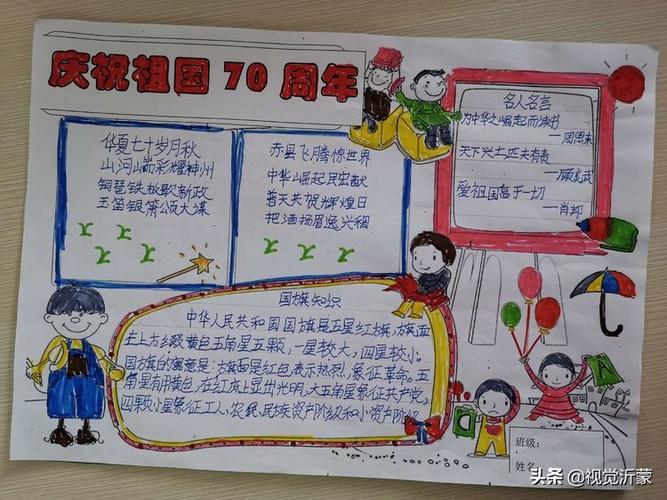 庆祝祖国 70 周年
华夏七十岁月秋
山河喘彩耀神州
铜琶铁板歌新政
玉笛银箫颂大谋
赤县飞腾惊世界
中华崛起民宏猷
普天共贺辉煌日
把酒扬眉逸兴稠
名人名言
为中华之崛起而读书
—周恩来
天下兴亡匹夫有责
—顾炎武
爱祖国高于一切
—肖邦
国旗知识
中华人民共和国国旗是五星红旗,旗面
左上方缀黄色五角星五颗,一星较大,四星较小。
国旗的寓意是:旗面是红色,表示热烈,象征革命。五
角星用黄色,在红底上显出光明,大五角星象征共产党,
四颗小星象征工人、农民、民族资产阶级和小资产阶级
班级:
姓名
头条 @视觉沂蒙